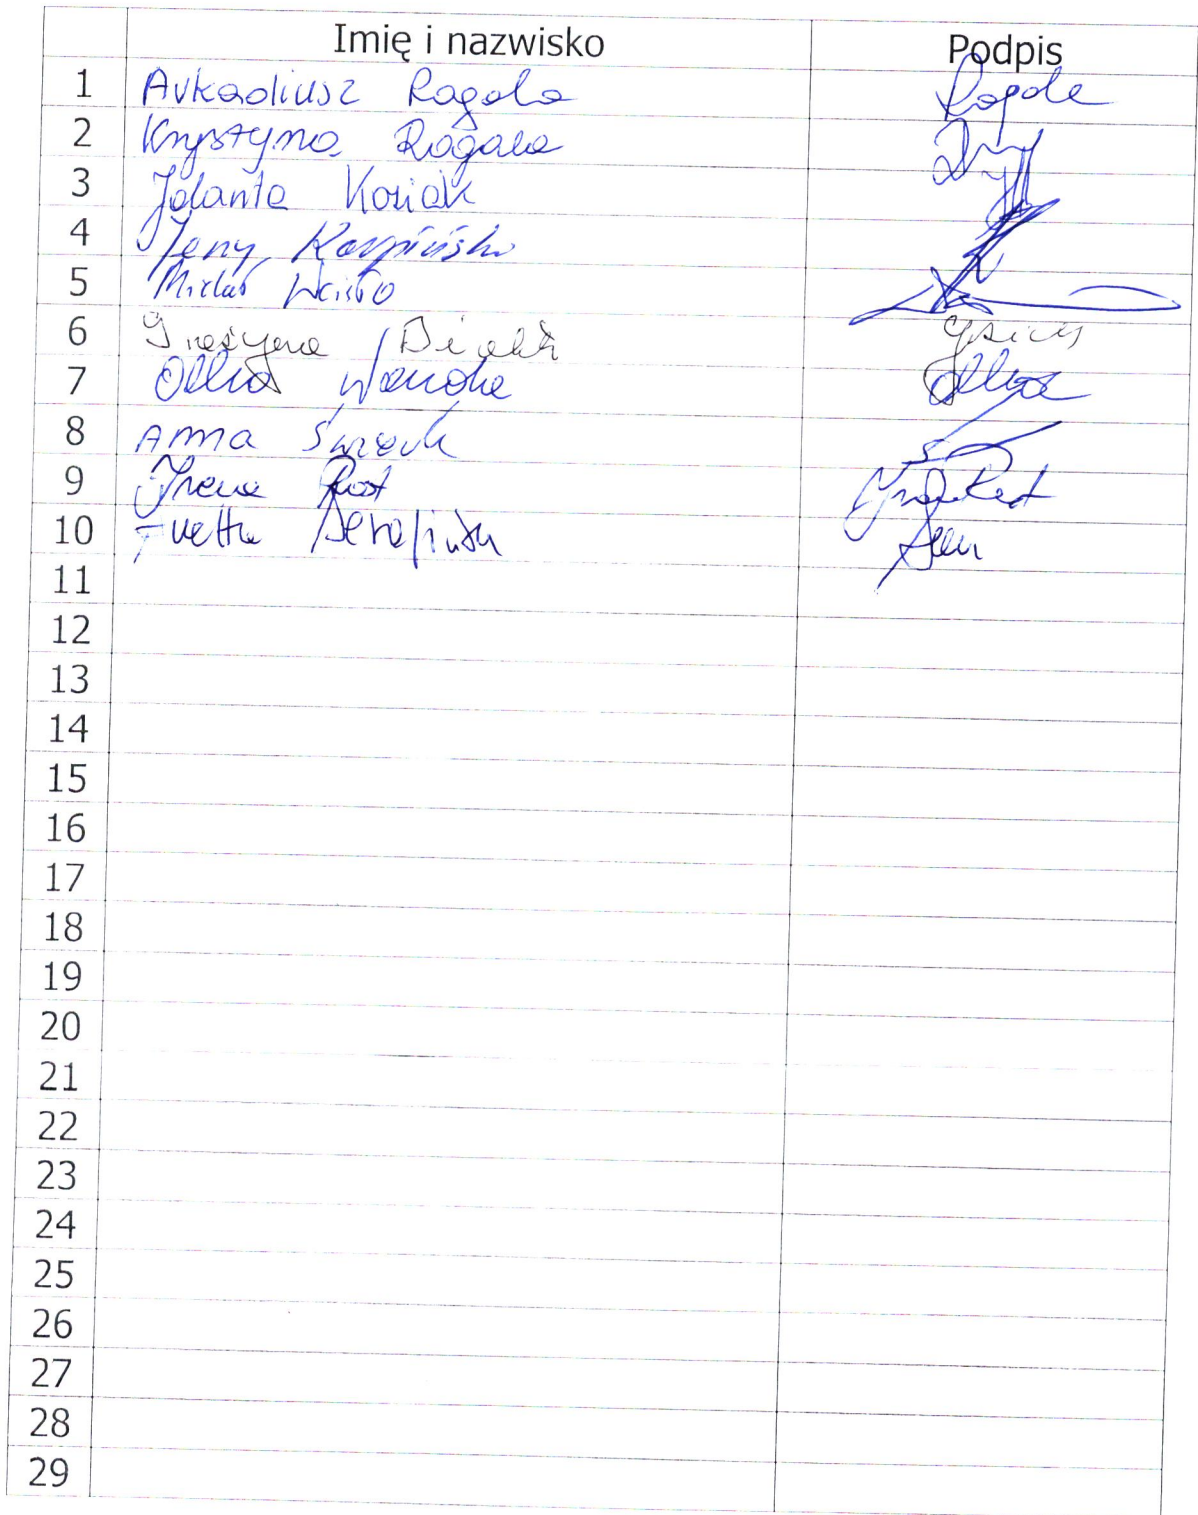 Imię i nazwisko Podpis
1 Arkadiusz Rogala Rogala
2 Krystyna Rogala
3 Jolanta Koziak
4 Jerzy Karpiński
5 Michał
6 Grażyna
7 Wanda
8 Anna
9 Irena Rot
10 Iwetta Serafińska
11
12
13
14
15
16
17
18
19
20
21
22
23
24
25
26
27
28
29